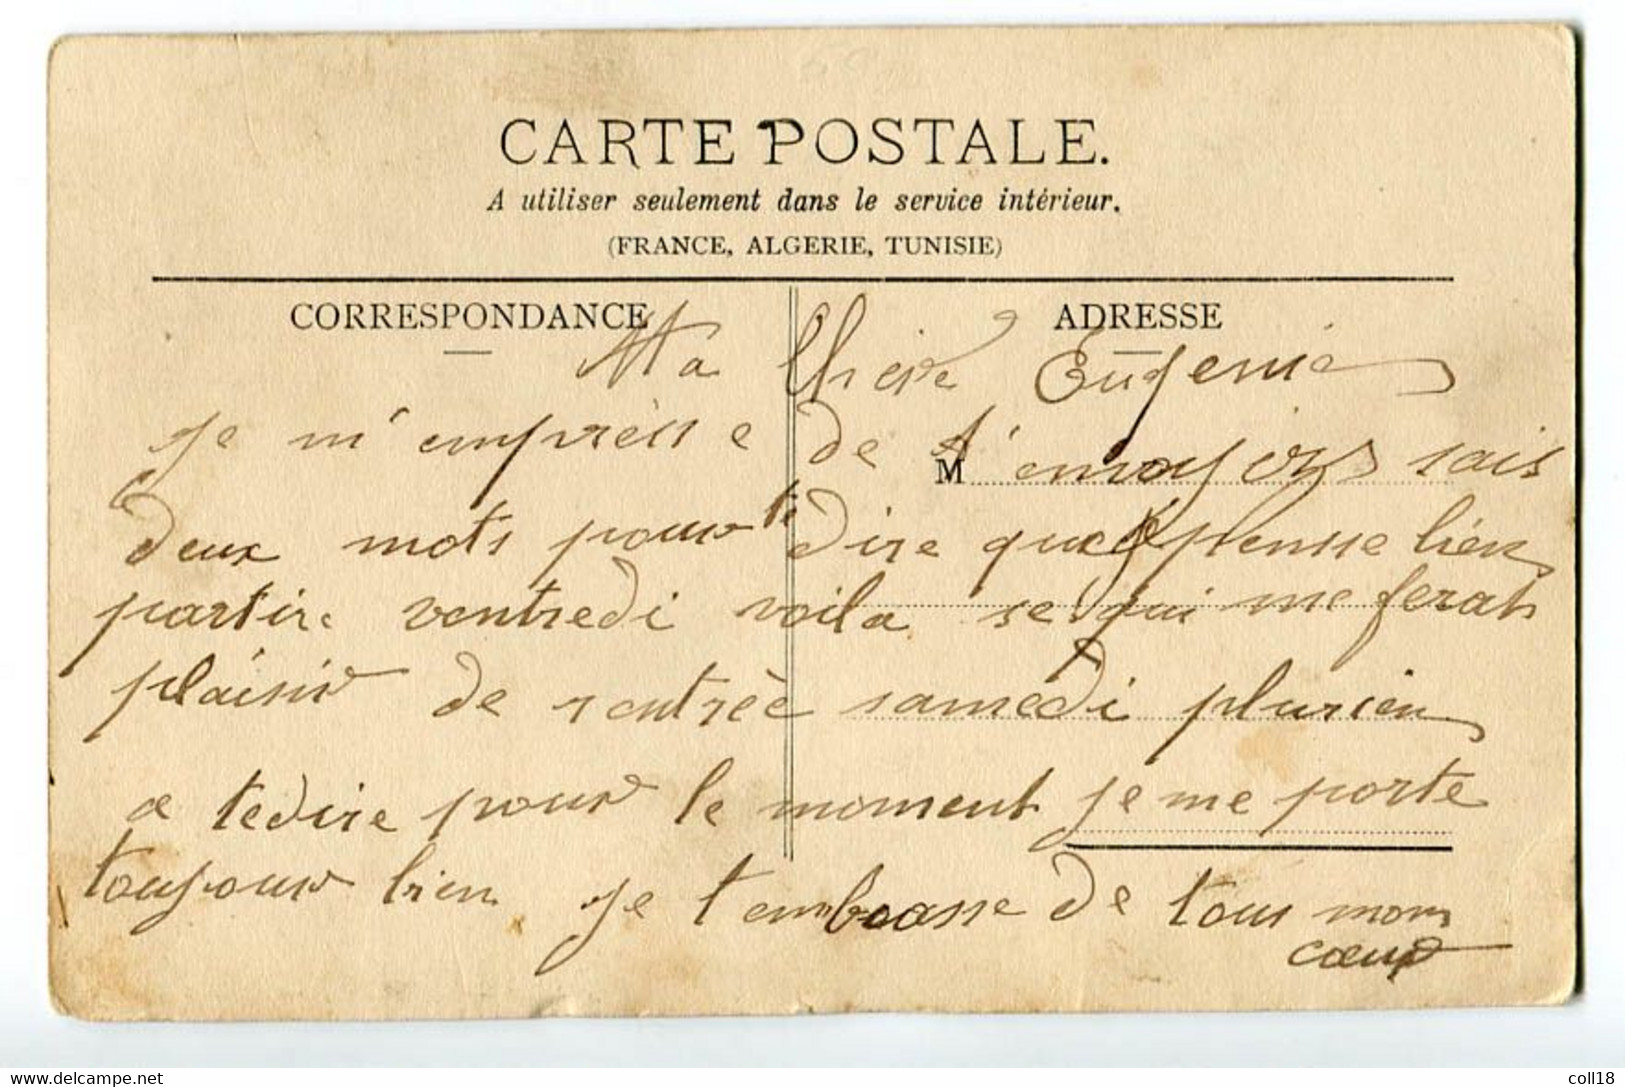 CARTE POSTALE.
A utiliser seulement dans le service intérieur.
(FRANCE, ALGERIE, TUNISIE)
CORRESPONDANCE
ADRESSE
Ma Chere Eugenie
je m'emprèsse de t'envoyers sais
M
deux mots pour te dire que je pensse bien
partire ventredi voila se qui me ferat
plaisir de rentrèe samedi plurien
a te dire pour le moment je me porte
toujour bien je t'embrasse de tous mom
cœur
delcampe.net
coll18